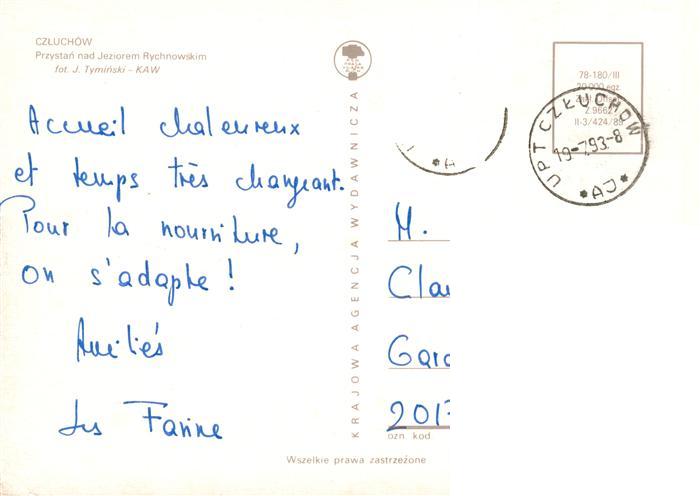 CZŁUCHÓW
Przystań nad Jeziorem Rychnowskim
fot. J. Tymiński – KAW
Accueil chaleureux
et temps très changeant.
Pour la nourriture,
on s'adapte !
Amitiés
Les Farine
KRAJOWA AGENCJA WYDAWNICZA
78-180/III
20 000 egz.
II-3/424/89
UPT CZŁUCHÓW
19-7.93-8
* AJ *
* A
M.
Cla
Gar
2013
ozn. kod
Wszelkie prawa zastrzeżone